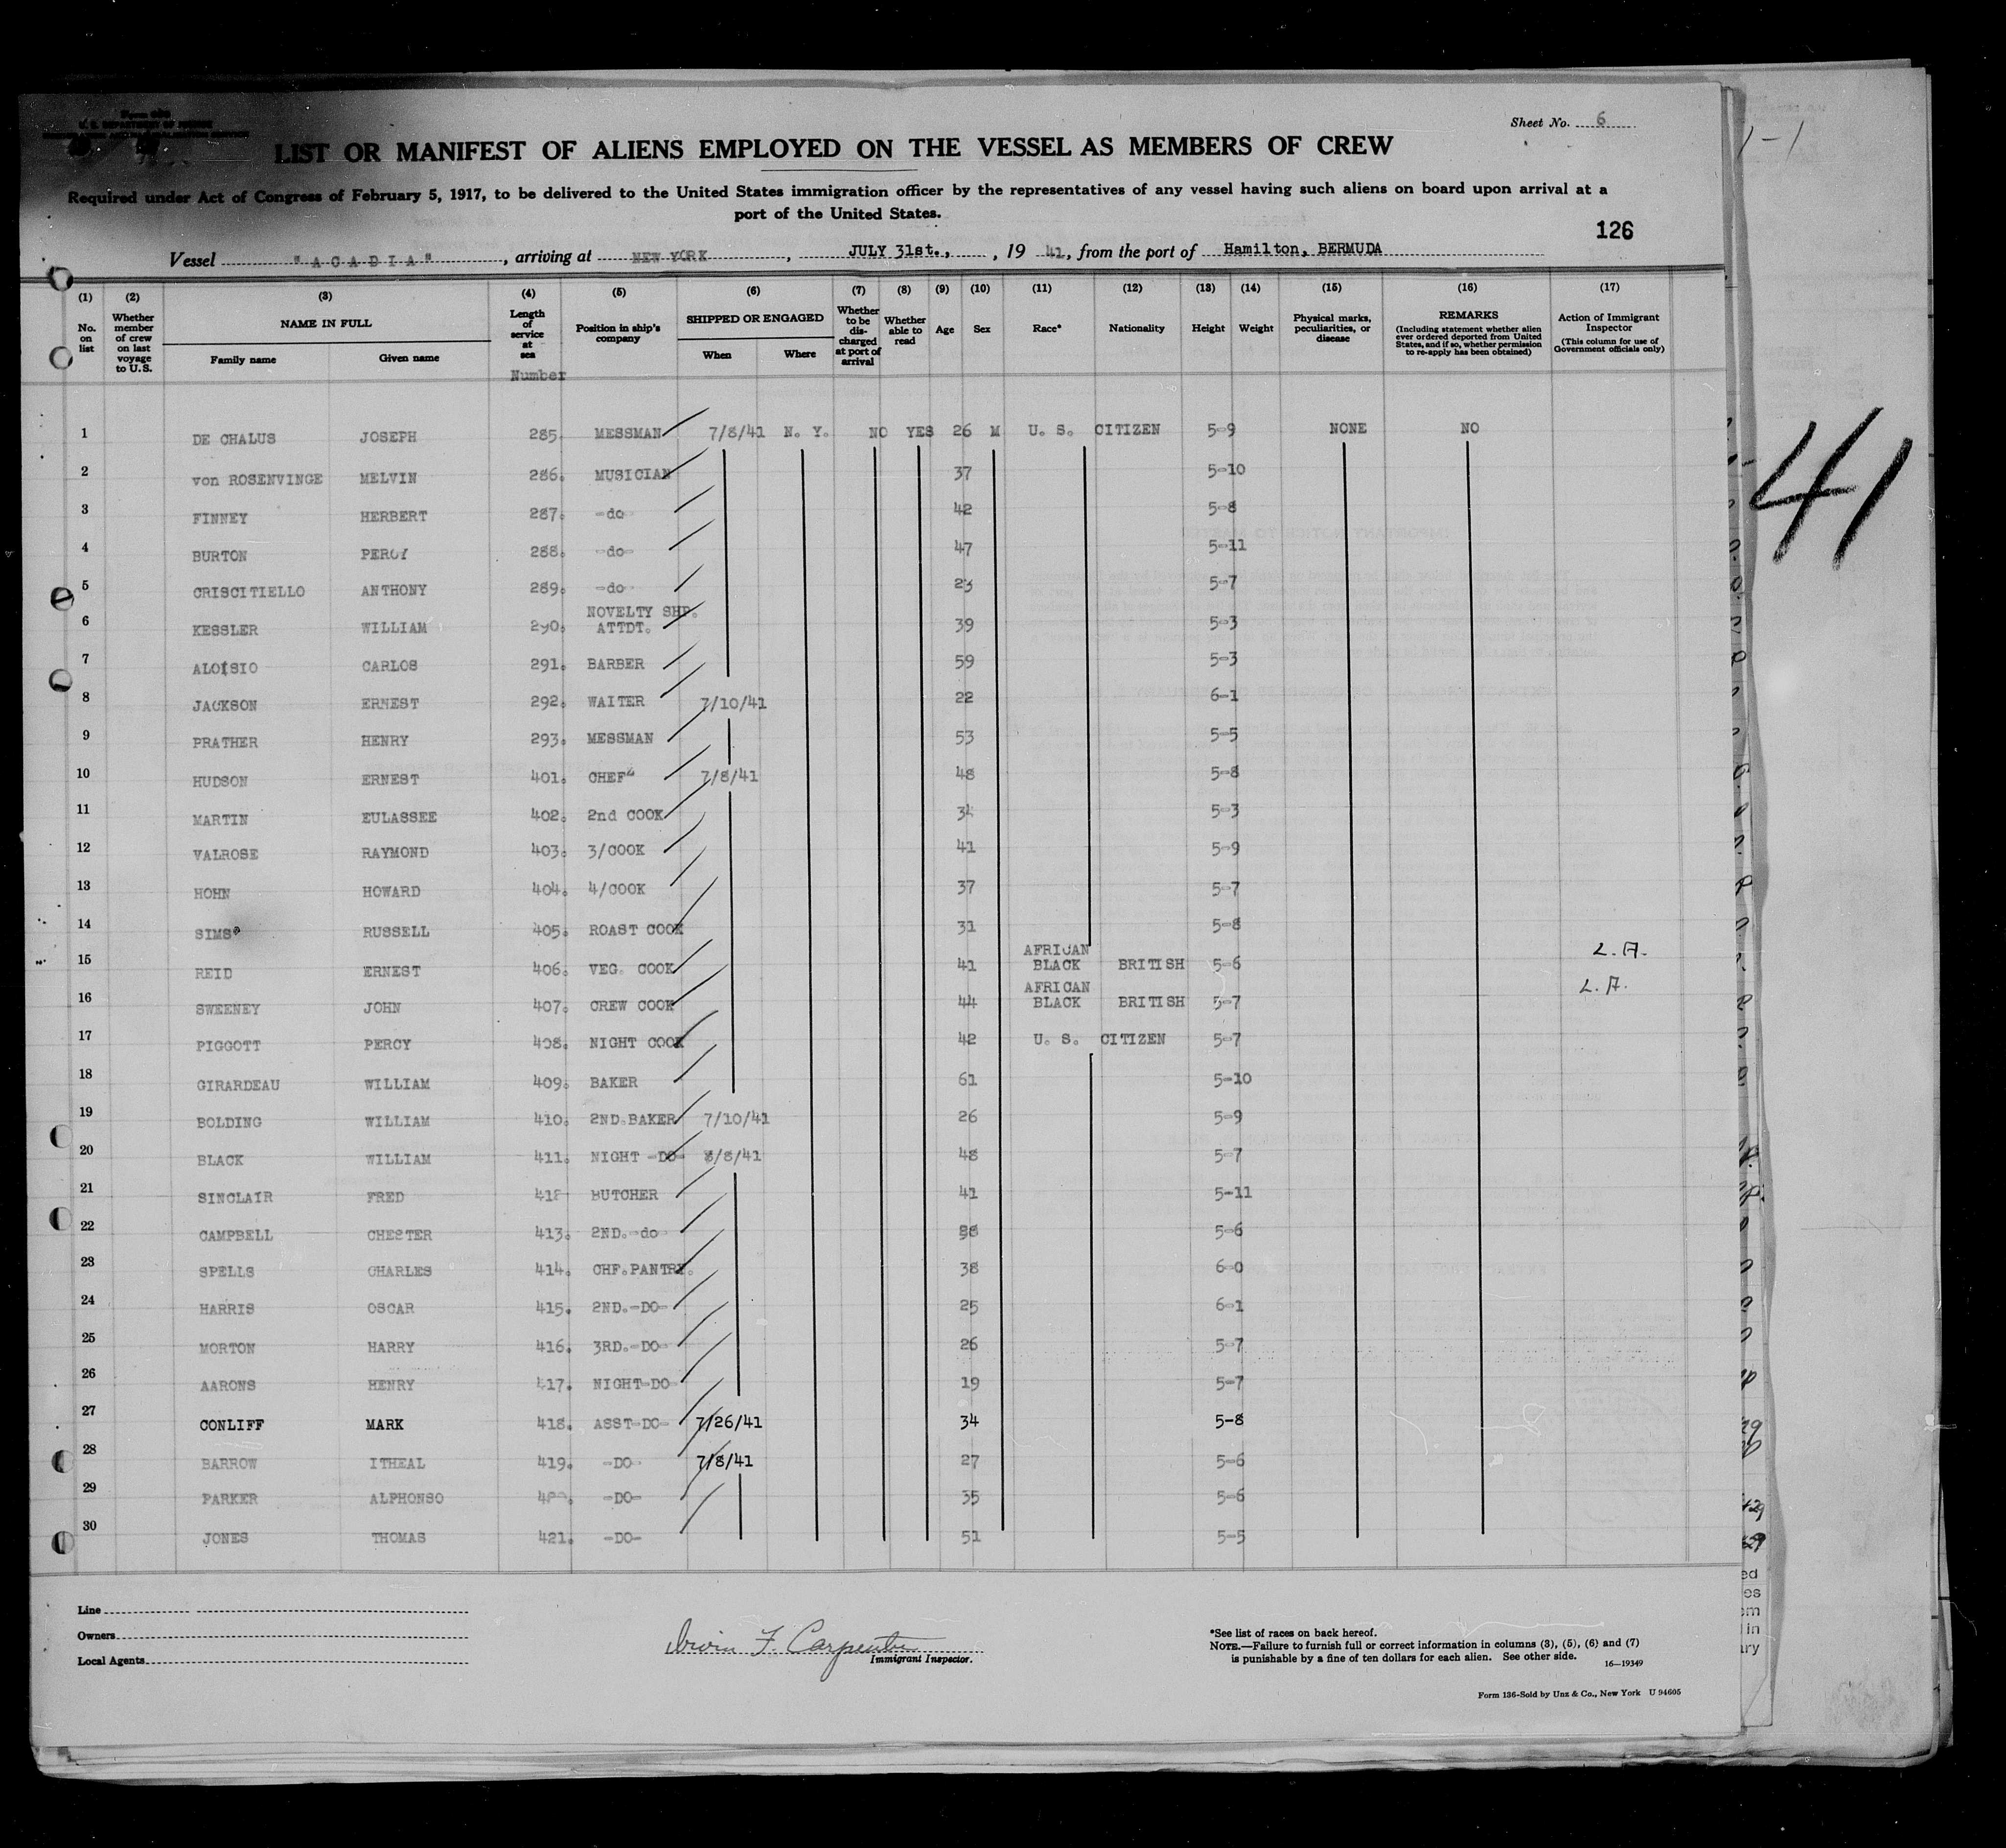 Sheet No. 6
LIST OR MANIFEST OF ALIENS EMPLOYED ON THE VESSEL AS MEMBERS OF CREW
Required under Act of Congress of February 5, 1917, to be delivered to the United States immigration officer by the representatives of any vessel having such aliens on board upon arrival at a
port of the United States.
126
Vessel "ACADIA", arriving at NEW YORK, JULY 31st., , 19 41, from the port of Hamilton, BERMUDA
(1) (2) (3) (4) (5) (6) (7) (8) (9) (10) (11) (12) (13) (14) (15) (16) (17)
No. on list
Whether member of crew on last voyage to U.S.
NAME IN FULL
Family name Given name
Length of service at sea
Number
Position in ship's company
SHIPPED OR ENGAGED
When Where
Whether to be discharged at port of arrival
Whether able to read
Age
Sex
Race*
Nationality
Height
Weight
Physical marks, peculiarities, or disease
REMARKS
(Including statement whether alien ever ordered deported from United States, and if so, whether permission to re-apply has been obtained)
Action of Immigrant Inspector
(This column for use of Government officials only)
1 DE CHALUS JOSEPH 285. MESSMAN 7/8/41 N. Y. NO YES 26 M U. S. CITIZEN 5-9 NONE NO
2 von ROSENVINGE MELVIN 286. MUSICIAN 37 5-10
3 FINNEY HERBERT 287. -do- 42 5-8
4 BURTON PERCY 288. -do- 47 5-11
5 CRISCITIELLO ANTHONY 289. -do- 23 5-7
6 KESSLER WILLIAM 290. NOVELTY SHP. ATTDT. 39 5-3
7 ALOISIO CARLOS 291. BARBER 59 5-3
8 JACKSON ERNEST 292. WAITER 7/10/41 22 6-1
9 PRATHER HENRY 293. MESSMAN 53 5-5
10 HUDSON ERNEST 401. CHEF 7/8/41 48 5-8
11 MARTIN EULASSEE 402. 2nd COOK 34 5-3
12 VALROSE RAYMOND 403. 3/COOK 41 5-9
13 HOHN HOWARD 404. 4/COOK 37 5-7
14 SIMS RUSSELL 405. ROAST COOK 31 5-8
15 REID ERNEST 406. VEG. COOK 41 AFRICAN BLACK BRITISH 5-6 L.A.
16 SWEENEY JOHN 407. CREW COOK 44 AFRICAN BLACK BRITISH 5-7 L.A.
17 PIGGOTT PERCY 408. NIGHT COOK 42 U. S. CITIZEN 5-7
18 GIRARDEAU WILLIAM 409. BAKER 61 5-10
19 BOLDING WILLIAM 410. 2ND.BAKER 7/10/41 26 5-9
20 BLACK WILLIAM 411. NIGHT -DO- 8/8/41 48 5-7
21 SINCLAIR FRED BUTCHER 41 5-11
22 CAMPBELL CHESTER 413. 2ND.-do- 5-6
23 SPELLS CHARLES 414. CHF.PANTRY. 38 6-0
24 HARRIS OSCAR 415. 2ND.-DO- 25 6-1
25 MORTON HARRY 416. 3RD.-DO- 26 5-7
26 AARONS HENRY 417. NIGHT-DO- 19 5-7
27 CONLIFF MARK 418. ASST-DO- 7/26/41 34 5-8
28 BARROW ITHEAL 419. -DO- 7/8/41 27 5-6
29 PARKER ALPHONSO -DO- 35 5-6
30 JONES THOMAS 421. -DO- 51 5-5
41
Line
Owners
Local Agents
Irwin F. Carpenter
Immigrant Inspector.
*See list of races on back hereof.
NOTE.—Failure to furnish full or correct information in columns (3), (5), (6) and (7)
is punishable by a fine of ten dollars for each alien. See other side.
16—19349
Form 136-Sold by Unz & Co., New York U 94605